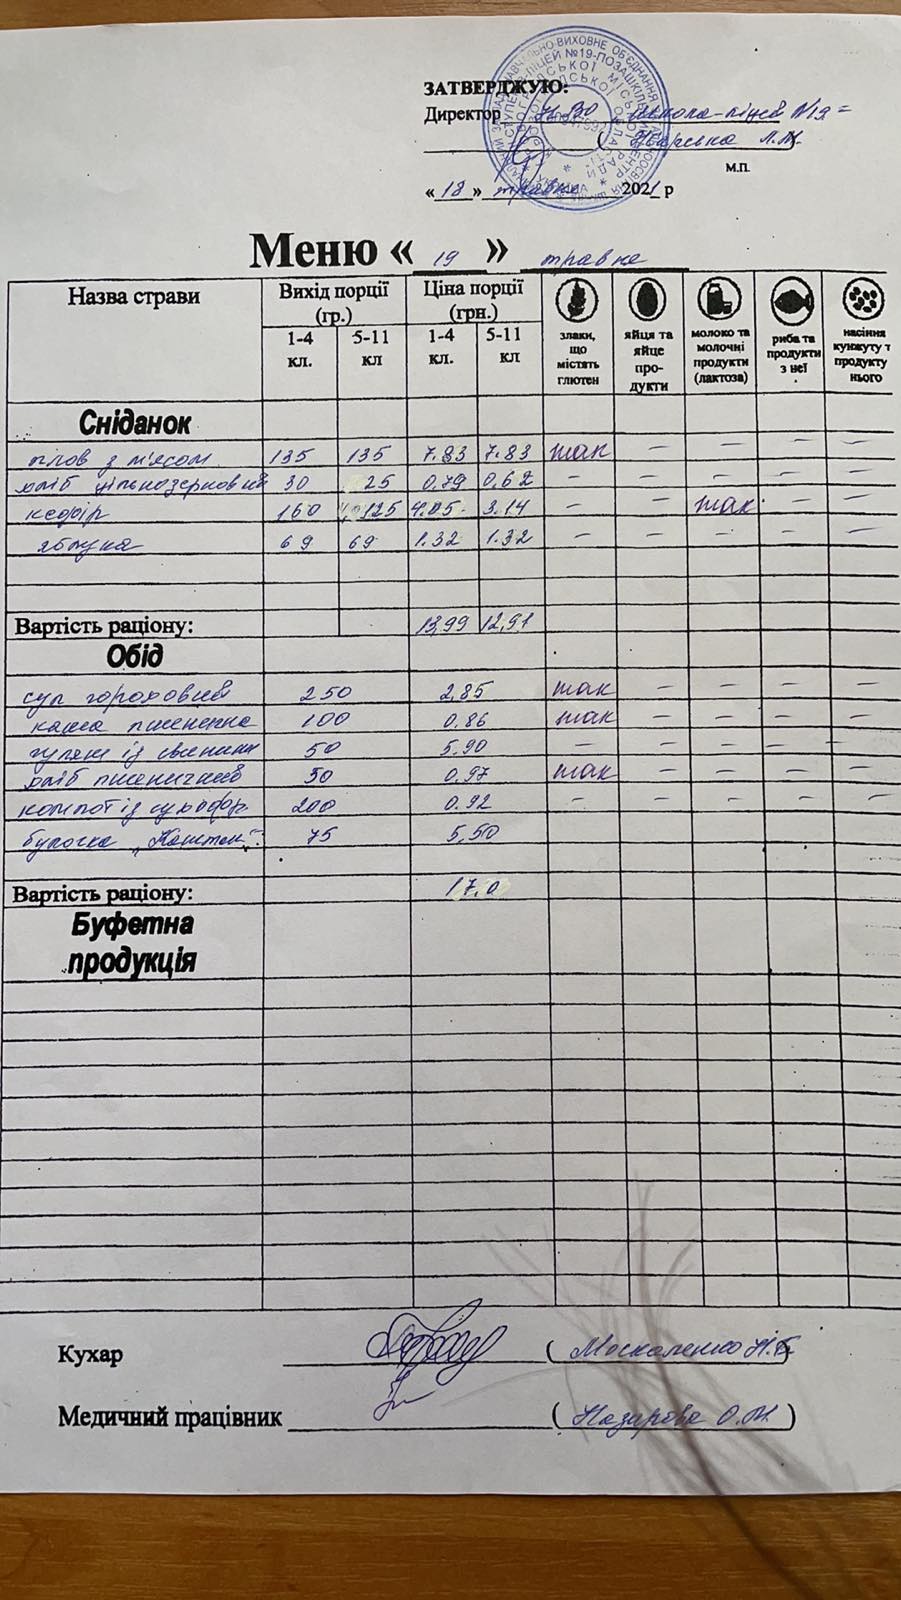 ЗАТВЕРДЖУЮ:
Директор НВО школа-ліцей №19=
« 18 » травня 2021 р
м.п.
Меню « 19 » травня
Назва страви Вихід порції (гр.) Ціна порції (грн.) злаки, що містять глютен яйця та яйце про- дукти молоко та молочні продукти (лактоза) риба та продукти з неї насіння кунжуту т продукту нього
1-4 кл. 5-11 кл 1-4 кл. 5-11 кл
Сніданок
плов з м'ясом 135 135 7.83 7.83 так – – – –
хліб цільнозерновий 30 25 0,79 0,62 – – – – –
кефір 160 125 4.05 3.14 – – так – –
яблука 69 69 1.32 1.32 – – – – –
Вартість раціону: 13,99 12,91
Обід
суп гороховий 250 2,85 так – – – –
каша пшенична 100 0.86 так – – – –
гуляш із свинини 50 5.90 – – – – –
хліб пшеничний 50 0.97 так – – – –
компот із сухофр. 200 0.92 – – – – –
булочка „Каштан" 75 5,50
Вартість раціону: 17,0
Буфетна
продукція
Кухар ( Москаленко Н.Б )
Медичний працівник ( Назарова О.М. )